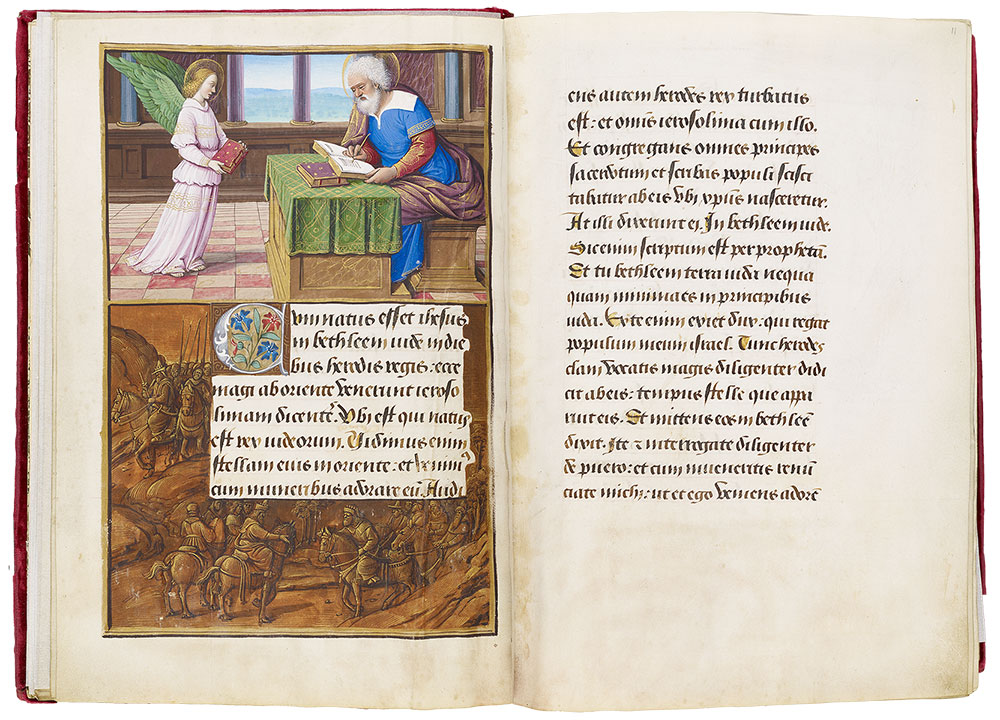 Cum natus esset ihesus
in bethleem iude in die
bus herodis regis: ecce
magi ab oriente venerunt ieroso
limam dicent̃. Vbi est qui natus
est rex iudeorum. Vidimus enim
stellam eius in oriente: et venim9
cum muneribus adorare eū. Audi
11
ens autem herodes rex turbatus
est: et omnis ierosolima cum illo.
Et congregans omnes principes
sacerdotum et scribas populi scisci
tabatur ab eis vbi xpūs nasceretur.
At illi dixerunt ei. In bethleem iude.
Sic enim scriptum est per prophetā.
Et tu bethleem terra iude nequa
quam minima es in principibus
iuda. Ex te enim exiet dux: qui regat
populum meum israel. Tunc herodes
clam vocatis magis diligenter didi
cit ab eis: tempus stelle que appa
ruit eis. Et mittens eos in bethleē
dixit. Ite & interrogate diligenter
de puero: et cum inveneritis renū
ciate michi: ut et ego veniens adorē